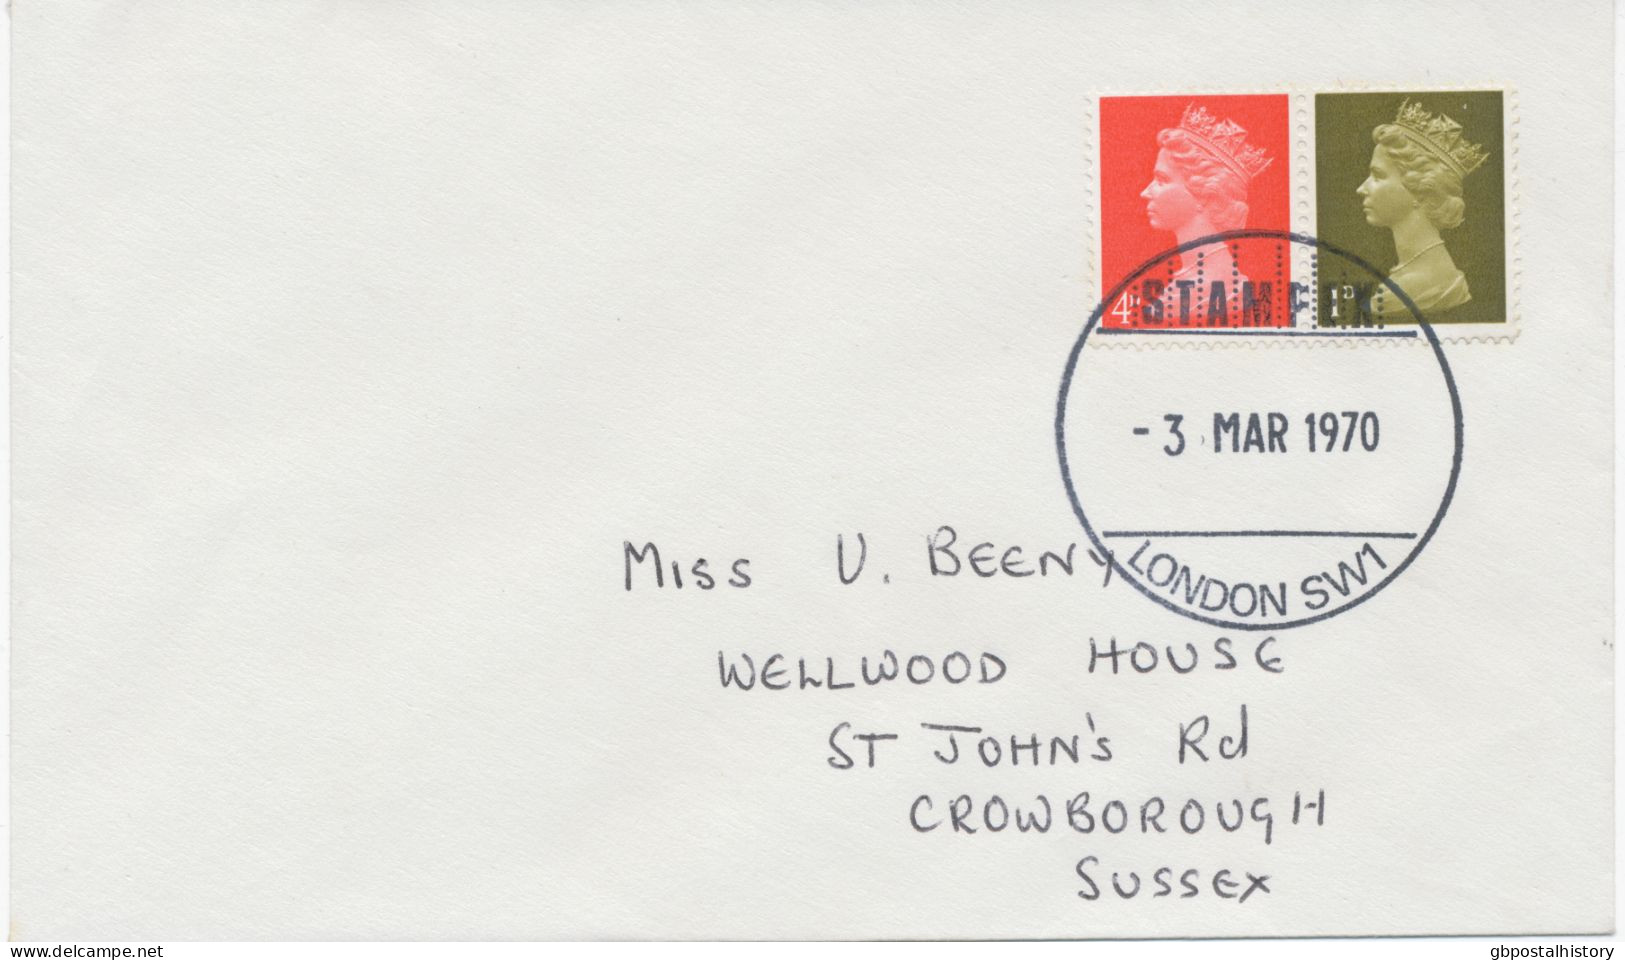 4D
1D
STAMPEX
- 3 MAR 1970
LONDON SW1
MISS V. BEENY
WELLWOOD HOUSE
ST JOHN'S Rd
CROWBOROUGH
SUSSEX
www.delcampe.net
gbpostalhistory